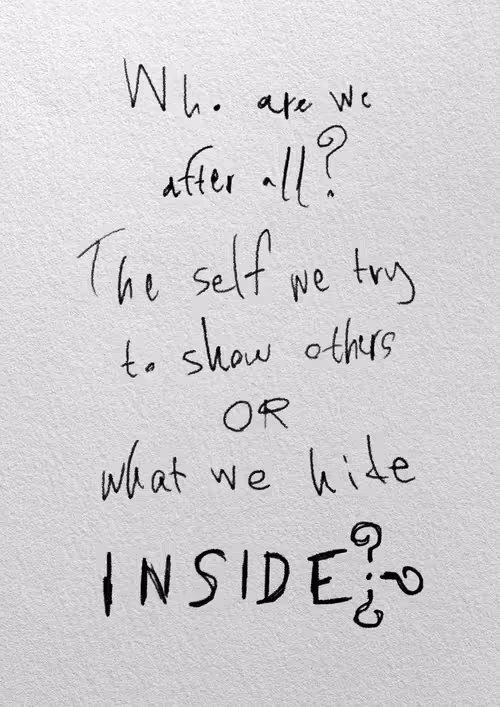 Who are we
after all?
The self we try
to show others
OR
what we hide
INSIDE???